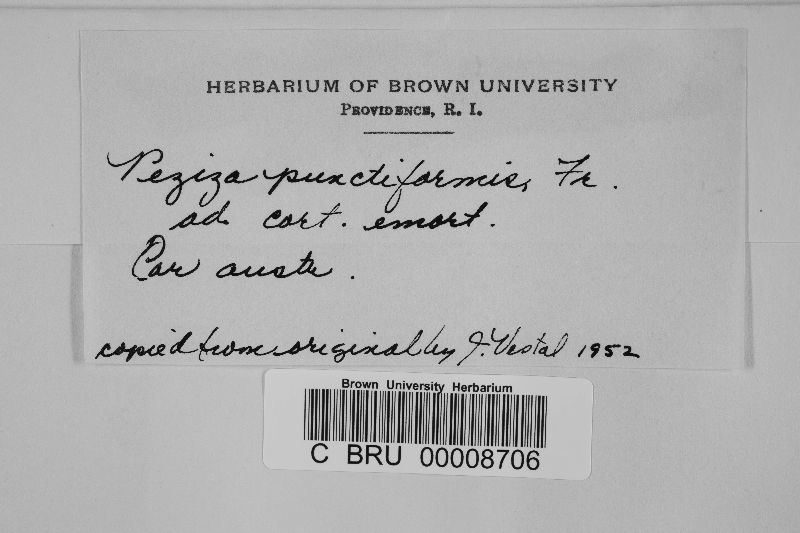 HERBARIUM OF BROWN UNIVERSITY
PROVIDENCE, R. I.
Peziza punctiformis, Fr.
ad cort. emort.
Car austr.
copied from original by J. Vestal 1952
Brown University Herbarium
C BRU 00008706